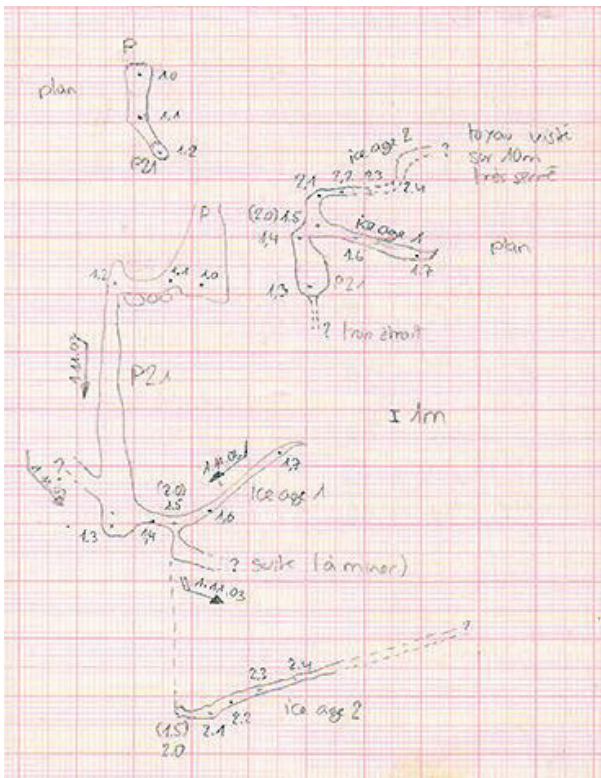 P
plan
1.0
1.1
1.2
P21
ice age 2
?
tuyau visité
sur 10m
très serré
2.1
2.2
2.3
2.4
(2.0) 1.5
1.4
ice age 1
1.6
1.7
plan
1.3
P21
? trou étroit
P
1.2
1.1
1.0
1.11.03
P21
I 1m
?
1.11.03
1.11.03
1.7
(2.0)
1.5
1.6
ice age 1
1.3
1.4
? suite (à miner)
1.11.03
?
2.3
2.4
(1.5)
2.0
2.1
2.2
ice age 2